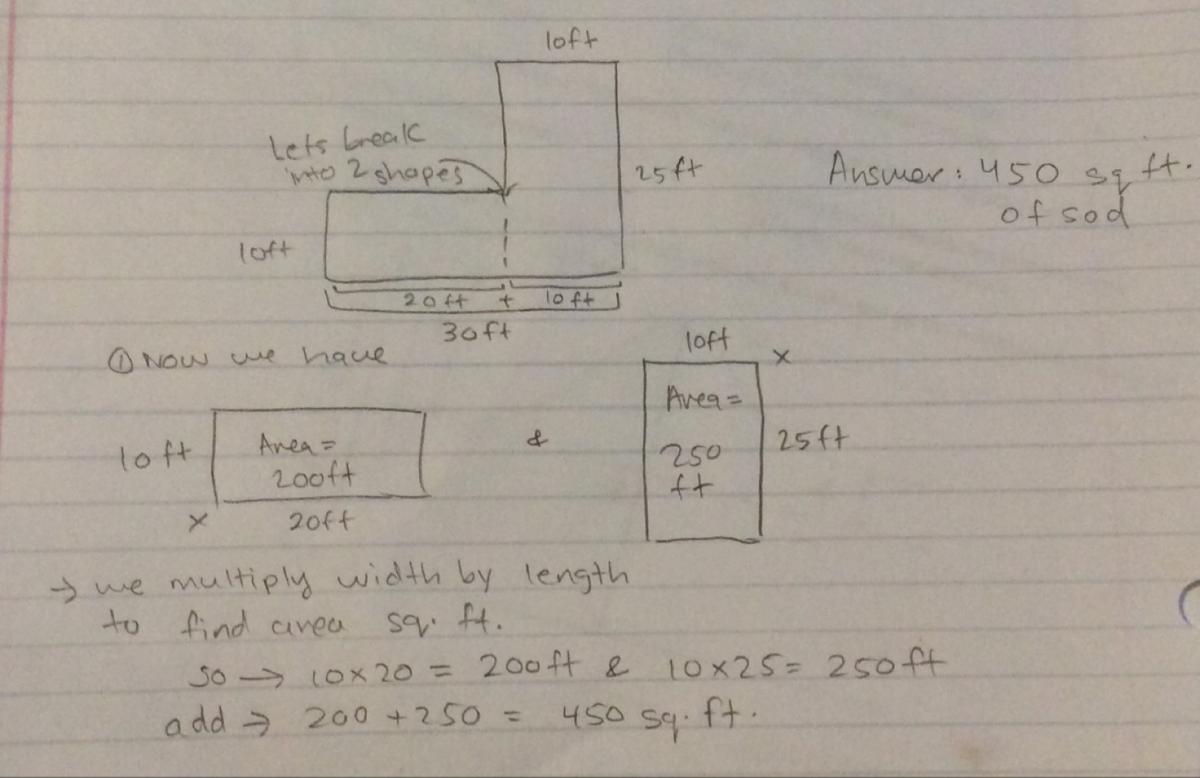 10ft
Lets break
into 2 shapes
25ft
Answer: 450 sq ft.
of sod
10ft
20ft + 10ft
30ft
① Now we have
10ft
x
Area =
200ft
10ft
x
20ft
&
Area =
250
ft
25ft
→ we multiply width by length
to find area sq. ft.
so → 10x20 = 200ft & 10x25= 250ft
add → 200 + 250 = 450 sq. ft.